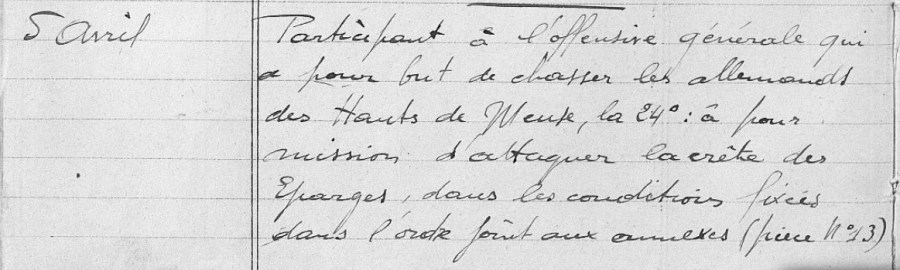 5 Avril Participant à l'offensive générale qui
a pour but de chasser les allemands
des Hauts de Meuse, la 24°: à pour
mission d'attaquer la crête des
Eparges, dans les conditions fixées
dans l'ordre joint aux annexes (pièce N°13)